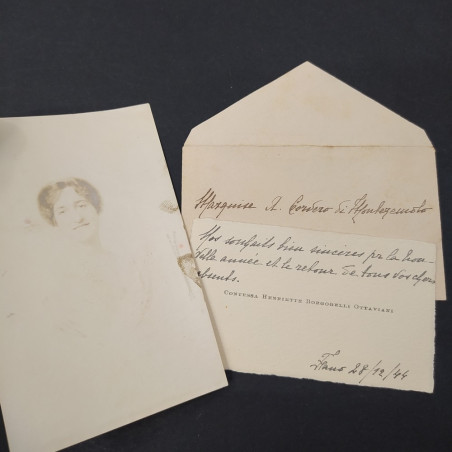 Marquise A. Cordero di Montezemolo
Nos souhaits bien sincères pr la nou-
velle année et le retour de tous vos chers
absents.
Contessa Henriette Borgogelli Ottaviani
Fano 28/12/44